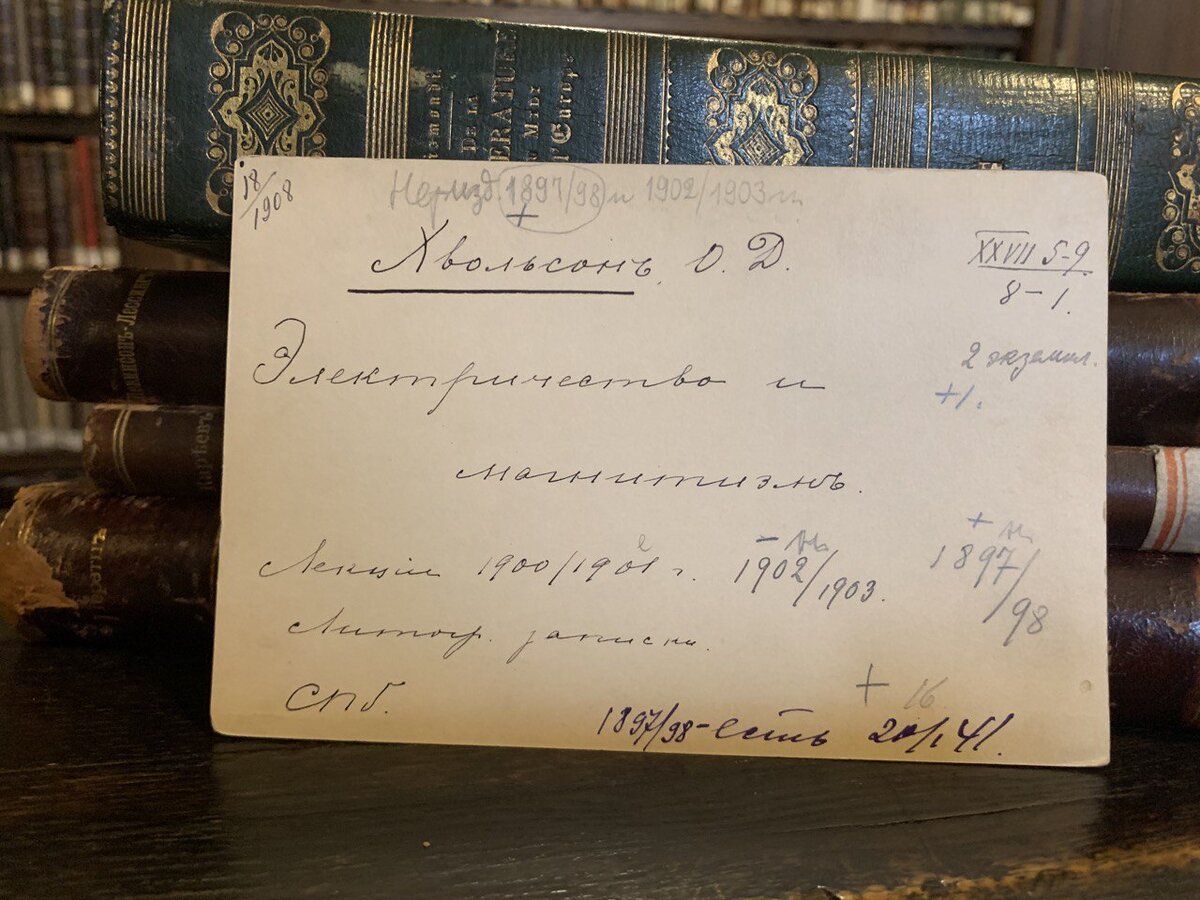 DE LA
l'Europe
18/1908
1897/98 и 1902/1903 гг.
+
Хвольсонъ, О. Д.
XXVII 5-9
8-1.
Электричество и
2 экземпл.
+1.
магнитизмъ.
Лекціи 1900/1901 г. 1902/1903. 1897/98
Литогр. записки.
СПб.
+ 16
1897/98 - есть 20/I 41.